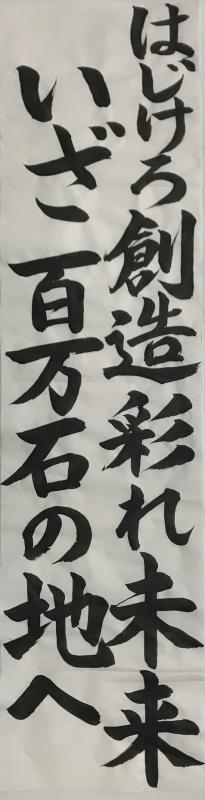 はじけろ創造彩れ未来
いざ百万石の地へ